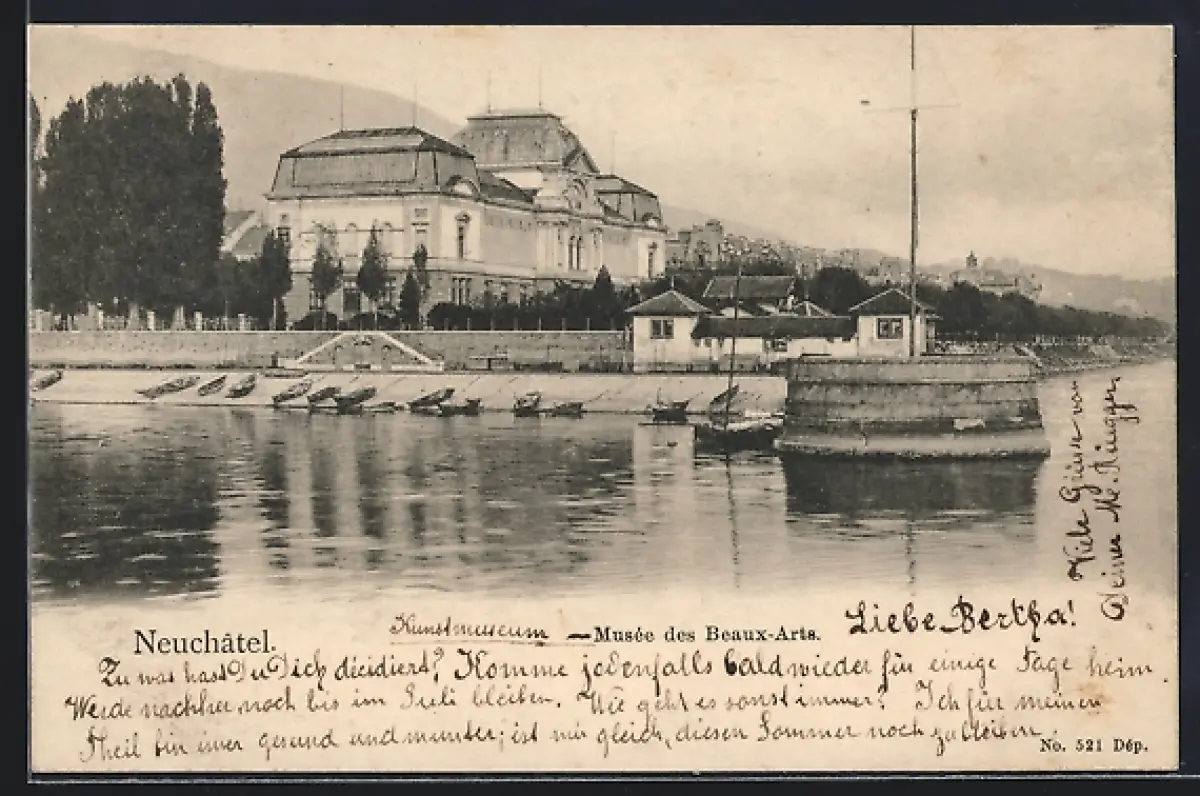 Neuchâtel. Kunstmuseum — Musée des Beaux-Arts.
Liebe Bertha!
Zu was hast Du Dich décidiert? Komme jedenfalls bald wieder für einige Tage heim.
Werde nachher noch bis im Juli bleiben. Wie geht es sonst immer? Ich für meinen
Theil bin immer gesund und munter; ist mir gleich, diesen Sommer noch zu bleiben.
Viele Grüsse von
Deiner M. Rüegger
No. 521 Dép.